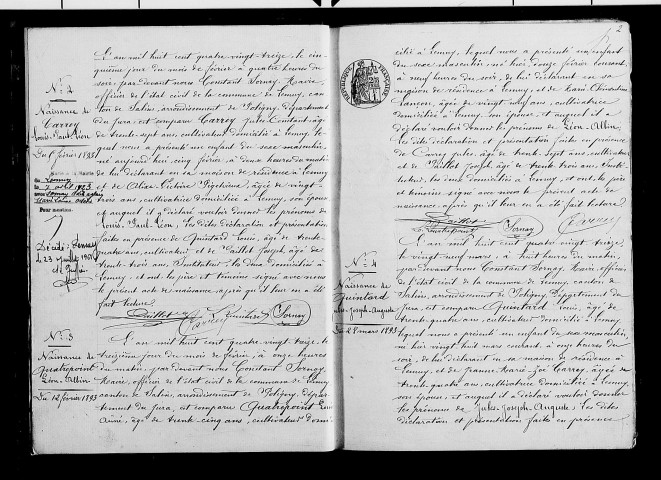 N° 2
Naissance de
Carrey
Louis-Paul-Léon
Du 5 février 1893
L'an mil huit cent quatre vingt-treize, le cin-
quième jour du mois de février à quatre heures du
soir, par devant nous Constant Sornay, Maire
officier de l'état civil de la commune de Lemuy, can-
ton de Salins, arrondissement de Poligny, département
du Jura, est comparu Carrey Jules Constant, âgé
de trente-sept ans, cultivateur domicilié à Lemuy, le
quel nous a présenté un enfant du sexe masculin
né aujourd'hui cinq février, à deux heures du matin
de lui déclarant en sa maison de résidence à Lemuy
et de Alice Victoire, âgée de vingt-
trois ans, cultivatrice domiciliée à Lemuy, son épouse
et auquel il a déclaré vouloir donner les prénoms de
Louis-Paul-Léon. Les dites déclaration et présentation
faites en présence de Quintard Louis, âgé de trente-
quatre ans, cultivateur et de Paillot Joseph âgé de
trente-trois ans, Instituteur, les deux domiciliés à
Lemuy; et ont les père et témoins signé avec nous
le présent acte de naissance, après qu'il leur en a été
fait lecture.
Paillot Carrey Sornay
Décédé à
le 23
N° 3
Naissance de
Quatrepoint
Léon-Albin
Du 12 février 1893
L'an mil huit cent quatre-vingt treize, le
treizième jour du mois de février, à onze heures
du matin, par devant nous Constant Sornay,
Maire, officier de l'état civil de la commune de Lemuy
canton de Salins, arrondissement de Poligny, dépar-
tement du Jura, est comparu Quatrepoint
Aimé, âgé de trente-cinq ans, cultivateur domi-
2
RÉPUBLIQUE FRANÇAISE
cilié à Lemuy, lequel nous a présenté un enfant
du sexe masculin, né hier, douze février courant,
à neuf heures du soir, de lui déclarant en sa
maison de résidence à Lemuy, et de Marie
Lançon, âgée de vingt-neuf ans, cultivatrice
domiciliée à Lemuy, son épouse, et auquel il a
déclaré vouloir donner les prénoms de Léon-Albin.
Les dites déclaration et présentation faites en présence
de Carrey Jules, âgé de trente-sept ans, cultivateur
et de Paillot Joseph âgé de trente-trois ans, Insti-
tuteur, les deux domiciliés à Lemuy, et ont les père
et témoins signé avec nous le présent acte de
naissance, après qu'il leur en a été fait lecture.
Paillot Sornay Carrey
Quatrepoint
N° 4
Naissance de
Quintard
Jules-Joseph-Auguste
Du 28 mars 1893
L'an mil huit cent quatre vingt treize,
le vingt-neuf mars, à huit heures du matin,
par devant nous Constant Sornay, Maire, officier
de l'état civil de la commune de Lemuy, canton de
Salins, arrondissement de Poligny, Département du
Jura, est comparu Quintard Louis, âgé de
trente-quatre ans, cultivateur domicilié à Lemuy,
lequel nous a présenté un enfant du sexe masculin
né hier vingt-huit mars courant, à onze heures du
soir, de lui déclarant en sa maison de résidence à
Lemuy, et de Jeanne Marie Carrey, âgée de
trente-quatre ans, cultivatrice domiciliée à Lemuy,
son épouse, et auquel il a déclaré vouloir donner
les prénoms de Jules-Joseph-Auguste; les dites
déclaration et présentation faites en présence